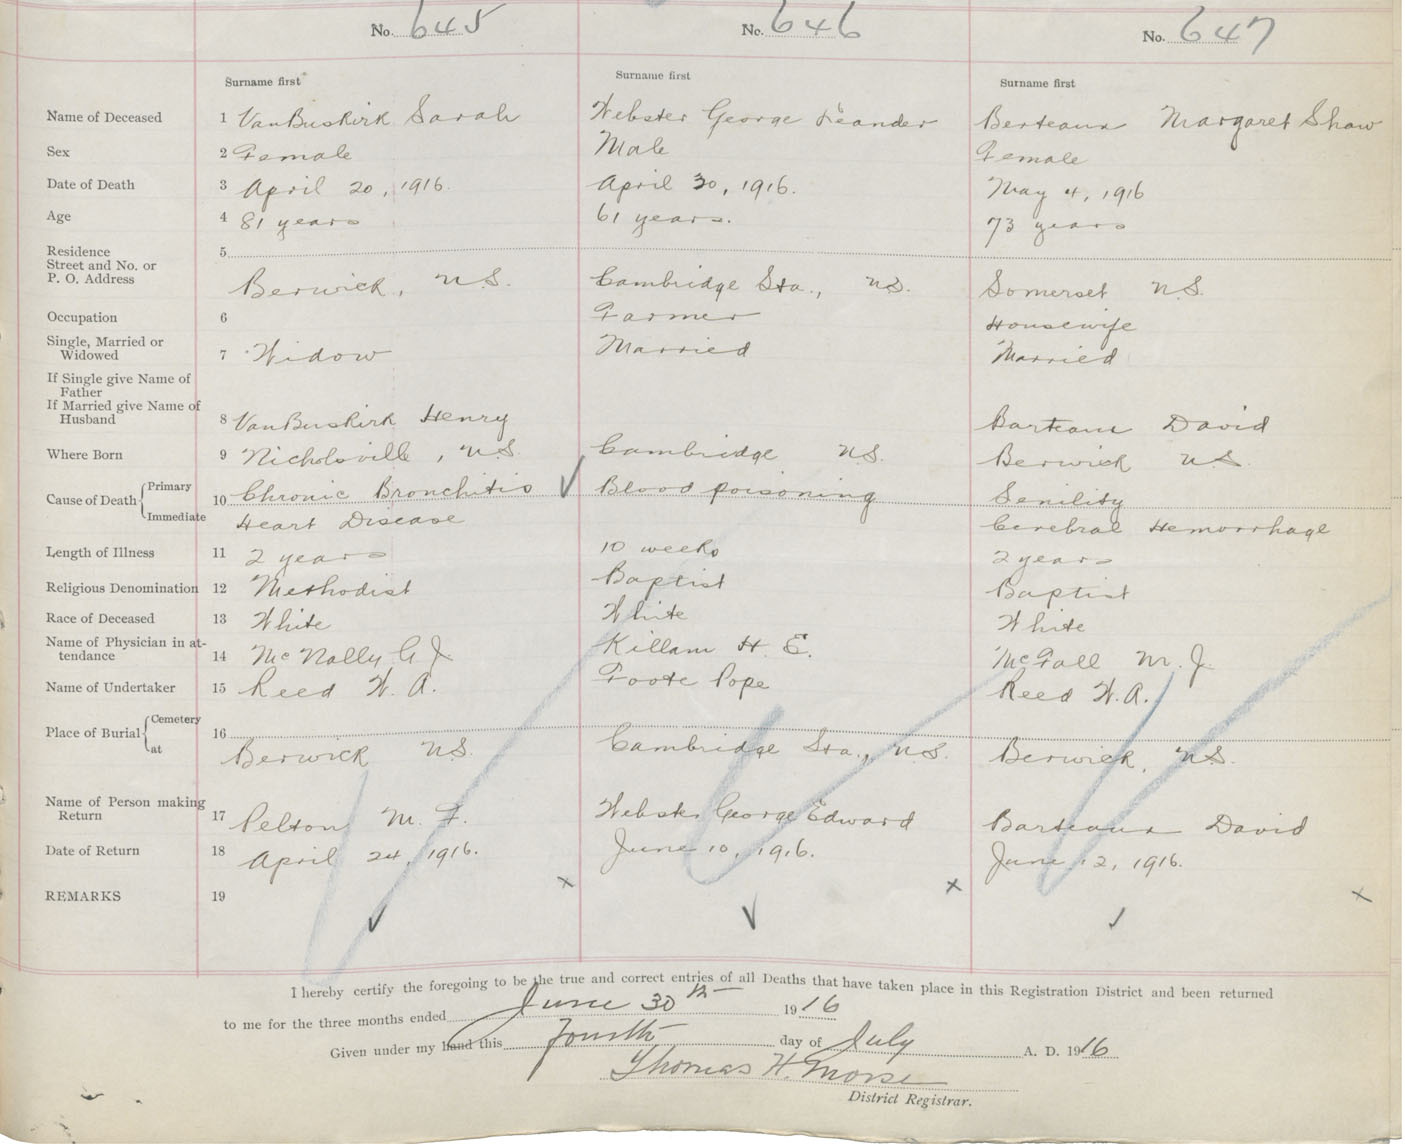 No. 645 No. 646 No. 647
Surname first Surname first Surname first
Name of Deceased 1 VanBuskirk Sarah Webster George Leander Berteaux Margaret Shaw
Sex 2 Female Male Female
Date of Death 3 April 20, 1916. April 30, 1916. May 4, 1916
Age 4 81 years 61 years. 73 years
Residence 5
Street and No. or
P. O. Address Berwick, N.S. Cambridge Sta., N.S. Somerset N.S.
Occupation 6 Farmer Housewife
Single, Married or
Widowed 7 Widow Married Married
If Single give Name of
Father
If Married give Name of
Husband 8 VanBuskirk Henry Barteaux David
Where Born 9 Nicholsville, N.S. Cambridge N.S. Berwick N.S.
Cause of Death Primary 10 Chronic Bronchitis Blood poisoning Senility
Immediate Heart Disease Cerebral Hemorrhage
Length of Illness 11 2 years 10 weeks 2 years
Religious Denomination 12 Methodist Baptist Baptist
Race of Deceased 13 White White White
Name of Physician in at-
tendance 14 McNally G J. Killam H. E. McFall M. J.
Name of Undertaker 15 Reed W. A. Foote Pope Reed W. A.
Place of Burial Cemetery 16
at Berwick N.S. Cambridge Sta., N.S. Berwick, N.S.
Name of Person making
Return 17 Pelton M. F. Webster George Edward Barteaux David
Date of Return 18 April 24, 1916. June 10, 1916. June 12, 1916.
REMARKS 19
I hereby certify the foregoing to be the true and correct entries of all Deaths that have taken place in this Registration District and been returned
to me for the three months ended June 30th 1916
Given under my hand this fourth day of July A. D. 1916
Thomas H. Morse
District Registrar.